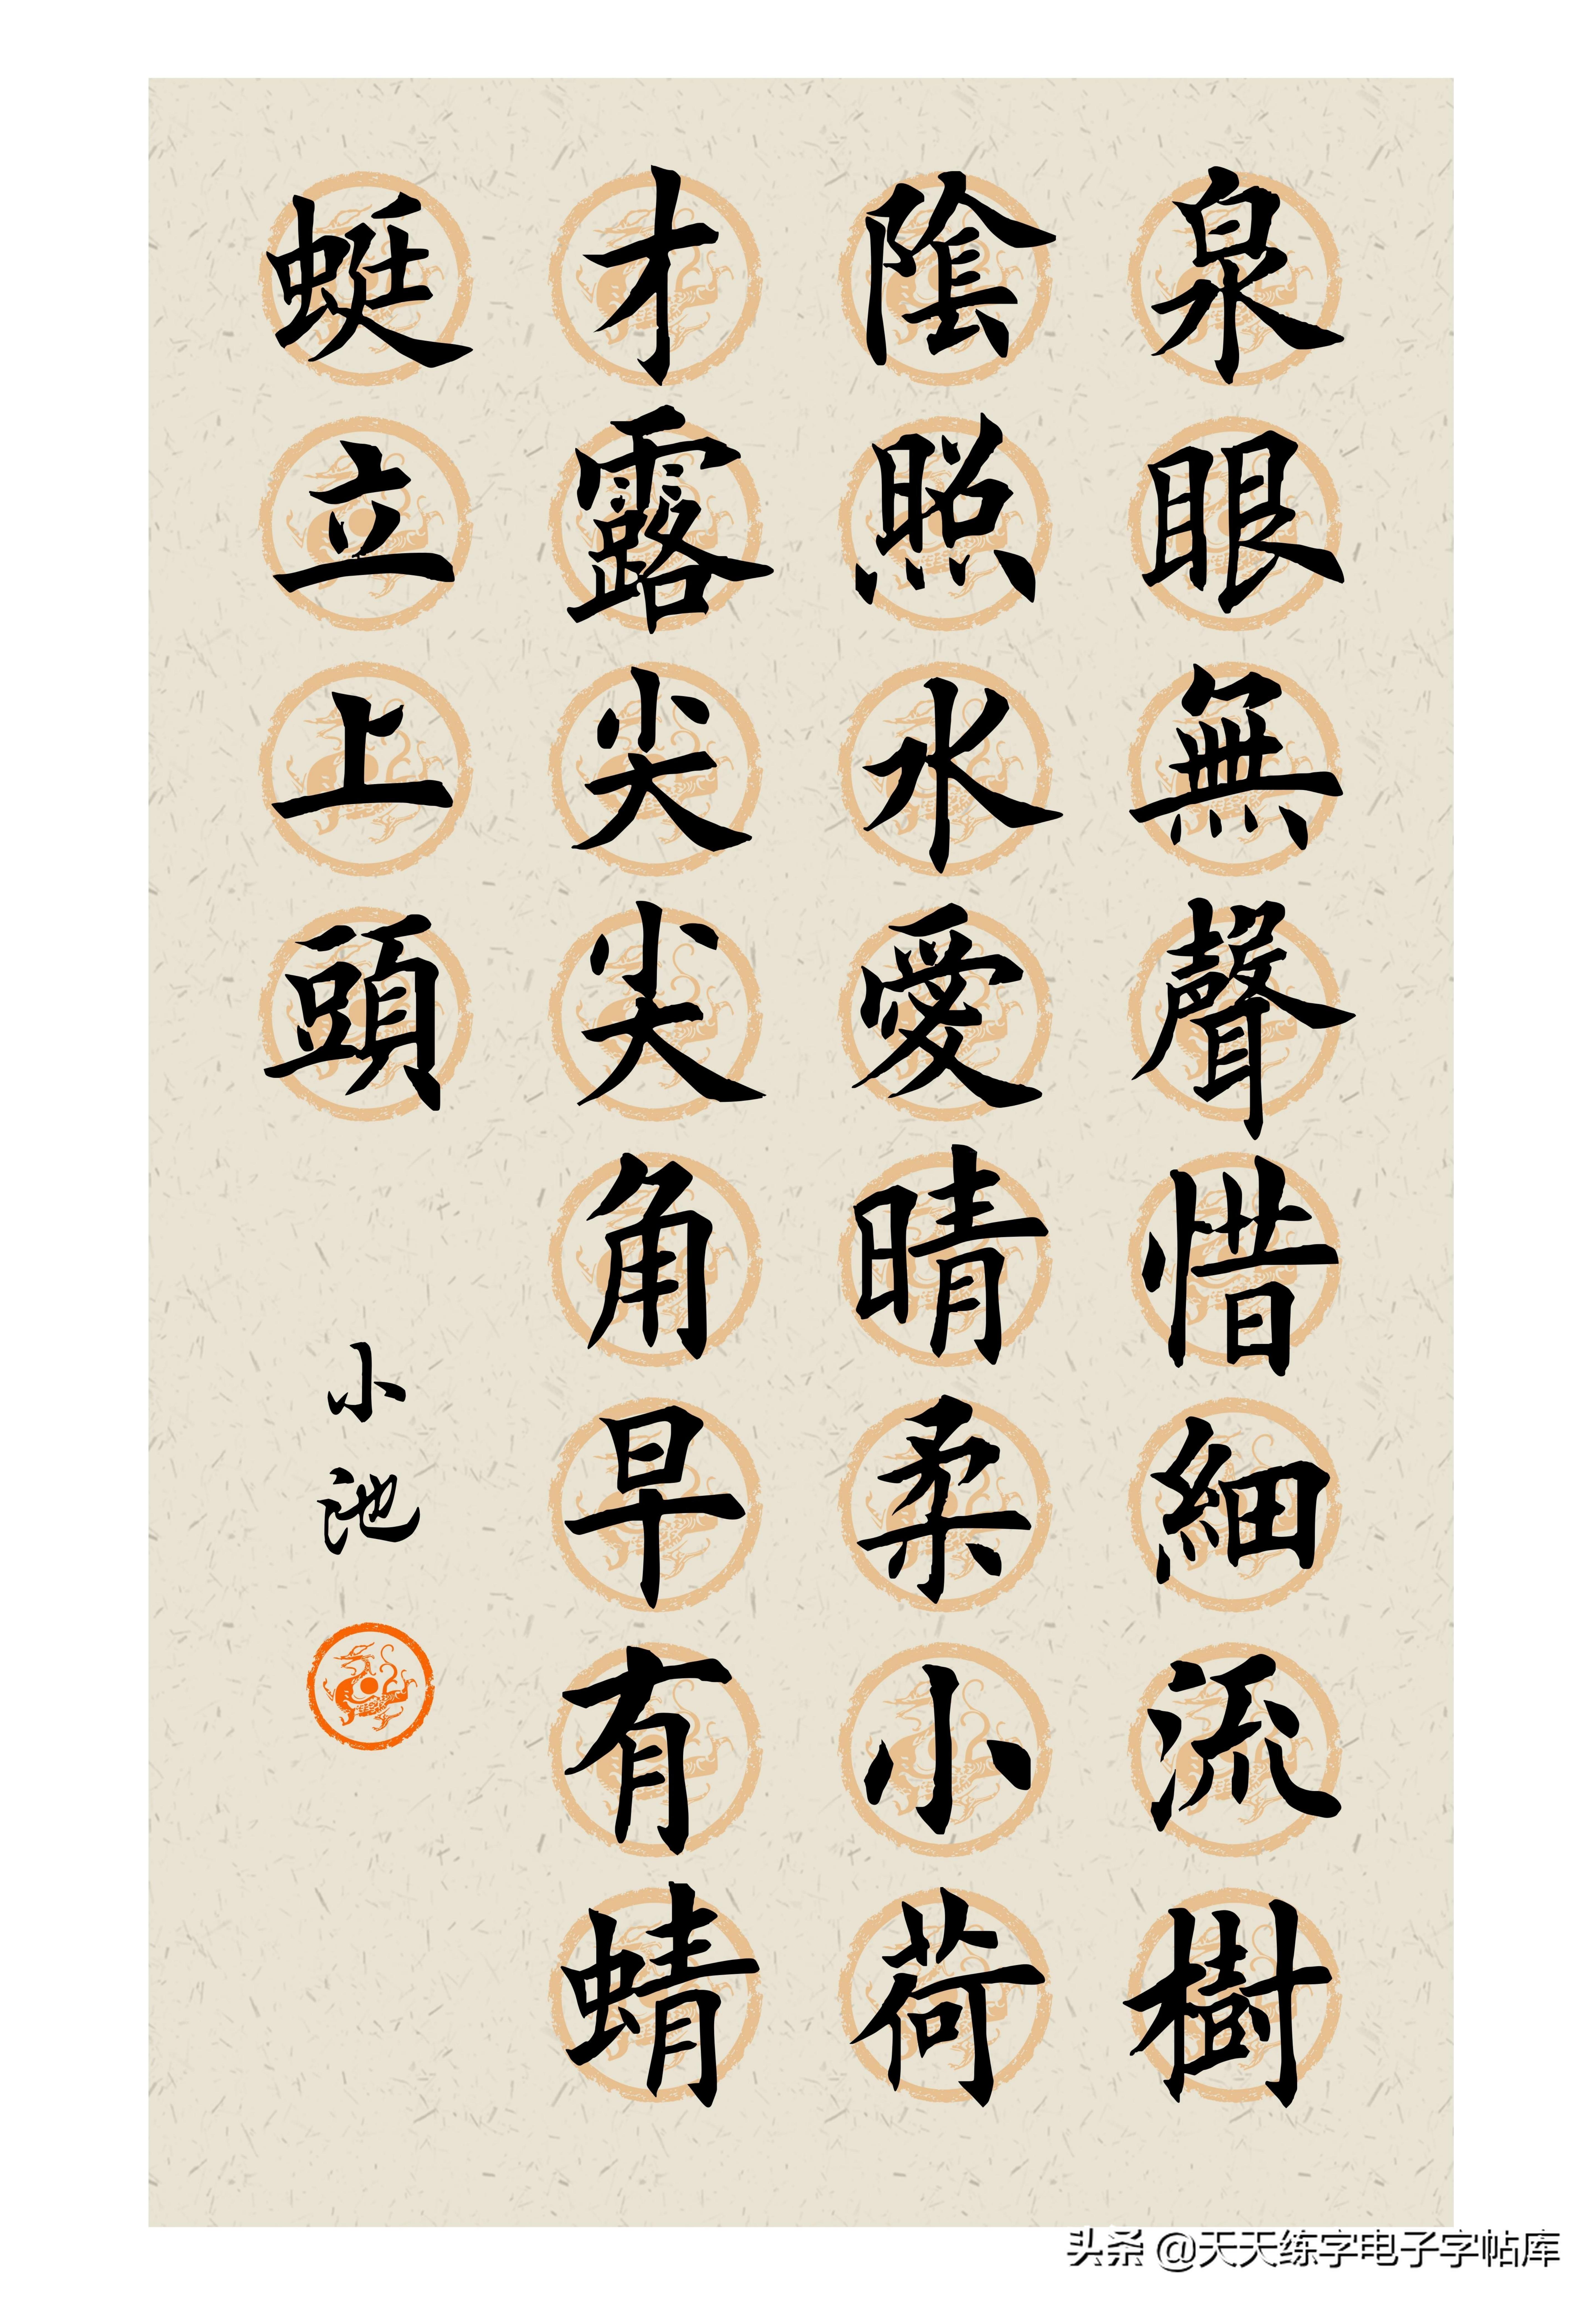 泉眼無聲惜細流樹
陰照水愛晴柔小荷
才露尖尖角早有蜻
蜓立上頭
小池
头条 @天天练字电子字帖库